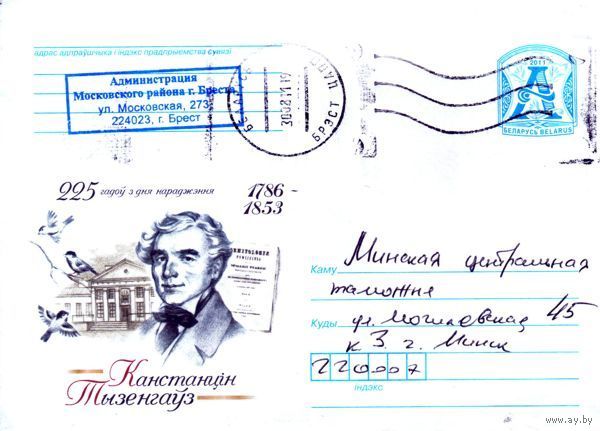 адрас адпраўшчыка і індэкс прадпрыемства сувязі
Администрация
Московского района г. Бреста
ул. Московская, 273
224023, г. Брест
БРЭСТ
2011
А
БЕЛАРУСЬ BELARUS
225 гадоў з дня нараджэння
1786 -
1853
ORNITOLOGIA
Канстанцін
Тызенгаўз
Каму Минская центральная
таможня
Куды ул. Могилевская 45
к 3 г. Минск
220007
Індэкс
www.ay.by